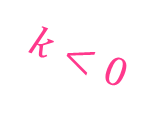 k < 0